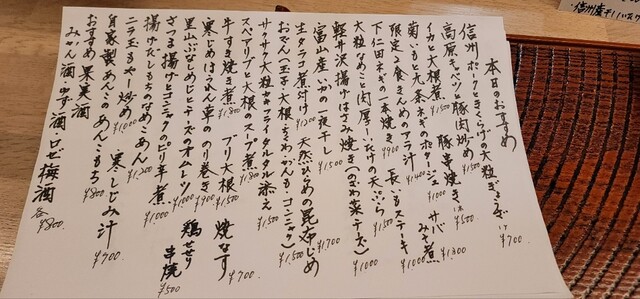 本日のおすすめ
信州ポークときくらげの大粒ぎょうざ ¥700
高原キャベツと豚肉炒め ¥1500
イカと大根煮 ¥1500 豚串焼き ¥500
菊いもと九条ネギのポタージュ サバみそ煮 ¥1300
限定2食きんめのアラ汁 ¥1400
下仁田ネギの一本焼き ¥900 長いもステーキ ¥1000
大粒なめこと肉厚しいたけの天ぷら ¥1500
軽井沢揚げはさみ焼き(のざわ菜チーズ) ¥1000
富山産いかの一夜干し ¥1500
生タラコ煮付け ¥1200 天然ひらめの昆布じめ ¥1700
おでん(玉子・大根・ちくわ・がんも・コンニャク) ¥1500
サクサク大粒カキフライタルタル添え ¥1500
スペアリブと大根のスープ煮 ¥1800
牛すき焼き煮 ¥1800 ブリ大根 ¥1500 焼なす ¥700
寒じめほうれん草ののり巻き ¥900
里山ぶなしめじとチーズのオムレツ ¥1000
さつま揚げとコンニャクのピリ辛煮 ¥1000 鶏せせり串焼 ¥500
揚げだしもちのなめこあん ¥1200
ニラ玉もやし炒め ¥1000 寒しじみ汁 ¥700
自家製あんこのあんころもち ¥800
おすすめ果実酒
みかん酒 ゆず酒 ロゼ梅酒 各¥800